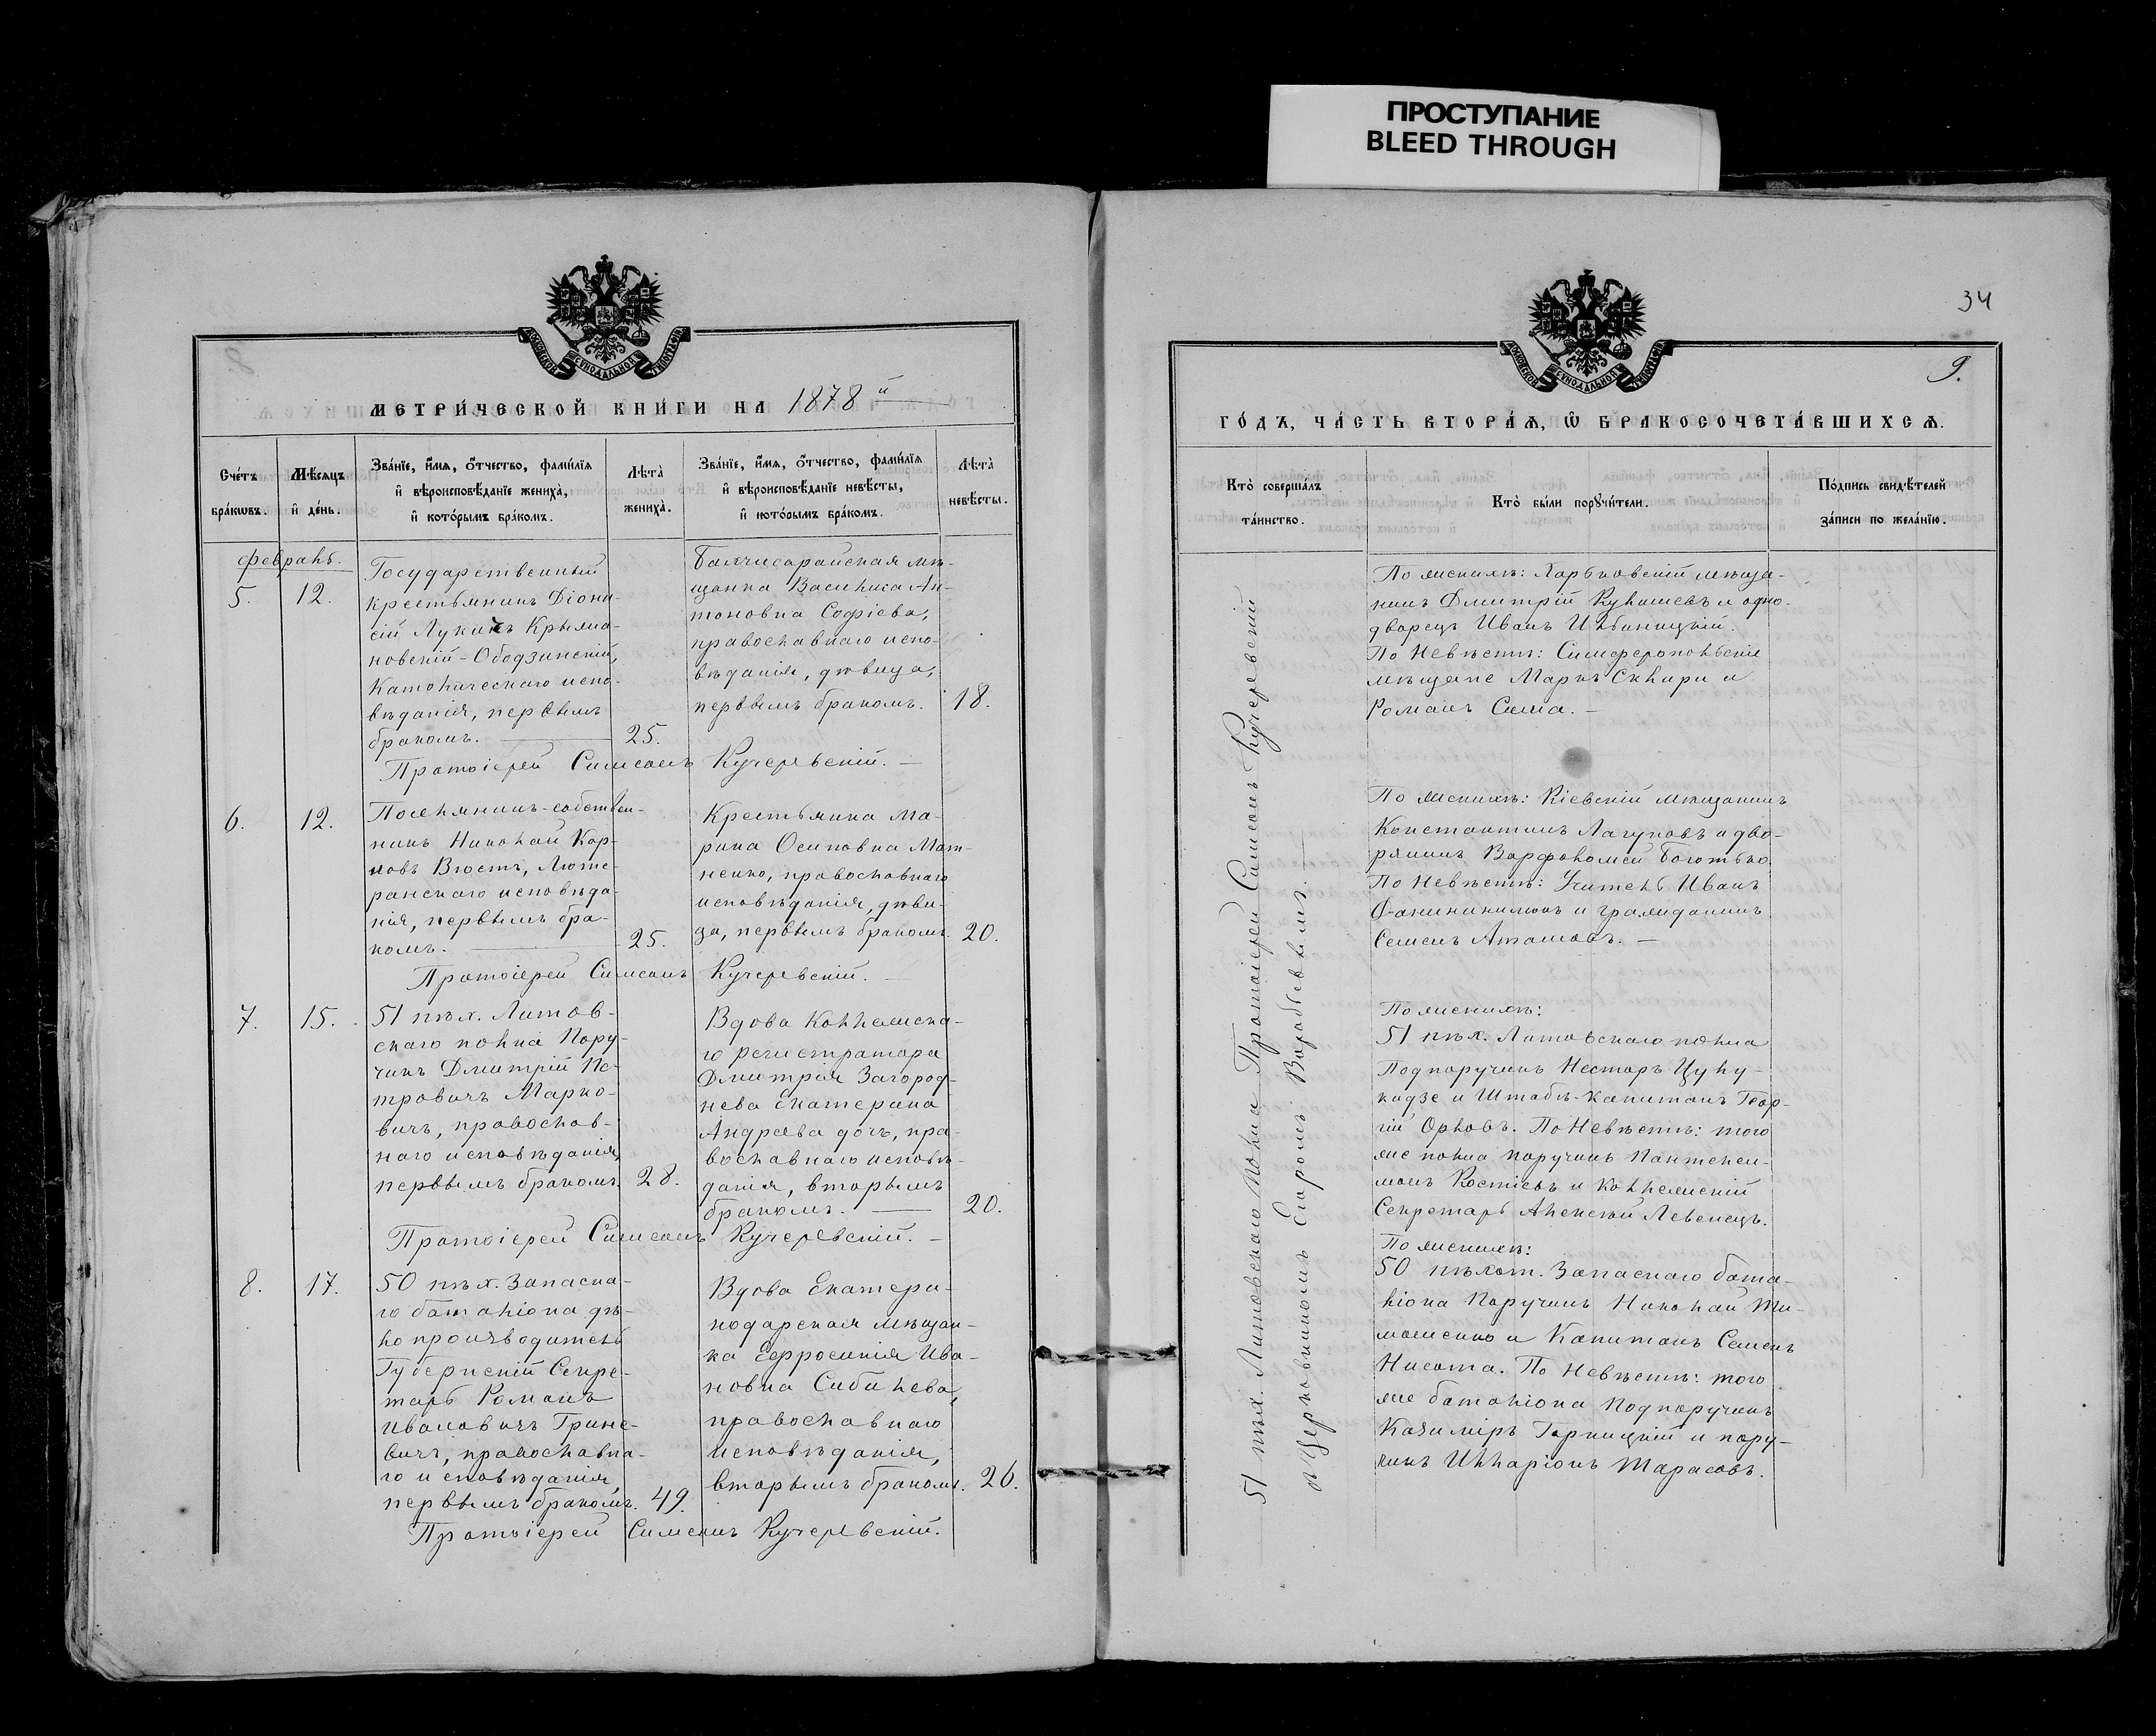 ПРОСТУПАНИЕ
BLEED THROUGH
МЕТРИ́ЧЕСКОЙ КНИ́ГИ НА 1878й
Сче́тъ бра́кѡвъ.
Мѣ́сяцъ и҆ де́нь.
Зва́нїе, и҆́мѧ, ѻ҆́тчество, фами́лїѧ
и҆ вѣроисповѣ́данїе жениха̀,
и҆ кото́рымъ бра́комъ.
Лѣ́та жениха̀.
Зва́нїе, и҆́мѧ, ѻ҆́тчество, фами́лїѧ
и҆ вѣроисповѣ́данїе невѣ́сты,
и҆ кото́рымъ бра́комъ.
Лѣ́та невѣ́сты.
Февраль.
5. 12.
Государственный
крестьянинъ Діони-
сій Лукичъ Крыжа-
новскій-Ободзинскій,
Католическаго испо-
вѣданія, первымъ
бракомъ. — 25.
Бахчисарайская мѣ-
щанка Василиса Ан-
тоновна Софіева,
православнаго испо-
вѣданія, дѣвица,
первымъ бракомъ. 18.
Протоіерей Симеонъ Кучеревскій. —
6. 12.
Поселянинъ-собствен-
никъ Николай Кар-
ловъ Вюстъ, Люте-
ранскаго исповѣда-
нія, первымъ бра-
комъ. — 25.
Крестьянка Ма-
рина Осиповна Мат-
ненко, православнаго
исповѣданія, дѣви-
ца, первымъ бракомъ. 20.
Протоіерей Симеонъ Кучеревскій. —
7. 15.
51 пѣх. Литов-
скаго полка Пору-
чикъ Дмитрій Пе-
тровичъ Марко-
вичъ, православ-
наго исповѣданія,
первымъ бракомъ. 28.
Вдова Коллежска-
го регистратора
Дмитрія Загород-
нева Екатерина
Андреева дочь, пра-
вославнаго исповѣ-
данія, вторымъ
бракомъ. — 20.
Протоіерей Симеонъ Кучеревскій. —
8. 17.
50 пѣх. Запасна-
го баталіона дѣ-
лопроизводитель
Губернскій Секре-
тарь Романъ
Ивановичъ Грине-
вичъ, православна-
го исповѣданія,
первымъ бракомъ. 49.
Вдова Екатери-
нодарская мѣщан-
ка Ефросинія Ива-
новна Сибилева,
православнаго
исповѣданія,
вторымъ бракомъ. 26.
Протоіерей Симеонъ Кучеревскій.
34
9.
ГО́ДЪ, ЧА́СТЬ ВТОРА́Ѧ, Ѡ҆ БРАКОСОЧЕТА́ВШИХСѦ.
Кто̀ соверша́лъ
та́инство.
Кто̀ бы́ли порꙋчи́тели.
По́дпись свидѣ́телей
за́писи по жела́нїю.
51 пѣх. Литовскаго полка Протоіерей Симеонъ Кучеревскій
съ Церковникомъ Егоромъ Воробьевымъ. —
По женихѣ: Харьковскій мѣща-
нинъ Дмитрій Кулишевъ и одно-
дворецъ Иванъ Ильбиницкій.
По Невѣстѣ: Симферопольскіе
мѣщане Маркъ Скляри и
Романъ Сима. —
По женихѣ: Кіевскій мѣщанинъ
Константинъ Лагуновъ и дво-
рянинъ Варфоломей Боготько.
По Невѣстѣ: Учитель Иванъ
и гражданинъ
Семенъ Аташовъ. —
По женихѣ:
51 пѣх. Литовскаго полка
Подпоручикъ Несторъ Цулу-
кидзе и Штабсъ-Капитанъ Геор-
гій Орловъ. По Невѣстѣ: того
же полка поручикъ Пантелей-
монъ Костіевъ и Коллежскій
Секретарь Алексѣй Левенецъ.
По женихѣ:
50 пѣхот. Запаснаго бата-
ліона Поручикъ Николай Ти-
мошенко и Капитанъ Семенъ
Нисота. По Невѣстѣ: того
же баталіона Подпоручикъ
Казиміръ Горницкій и пору-
чикъ Илларіонъ Тарасовъ.